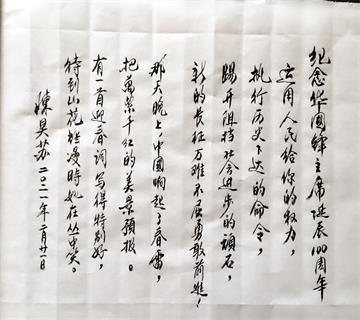 纪念华国锋主席诞辰100周年
运用人民给你的权力，
执行历史下达的命令，
踢开阻挡社会进步的顽石，
新的长征万难不屈勇敢前进！
那天晚上中国响起了春雷，
把万紫千红的美景预报。
有一首迎春词写得特别好，
待到山花烂漫时她在丛中笑。
陈昊苏 二〇二一年二月廿一日